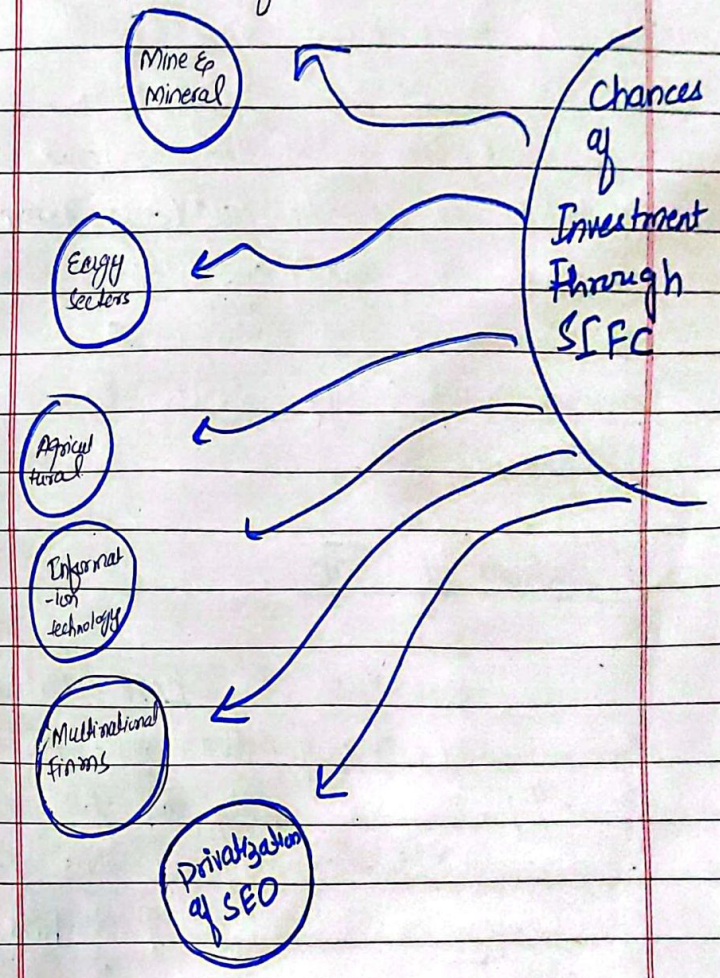 Mine &
Mineral
Chances
of
Investment
Through
SIFC
Eergy
Sectors
Agricul
tural
Informat
-ion
technology
Multinational
Firms
Privatization
of SEO